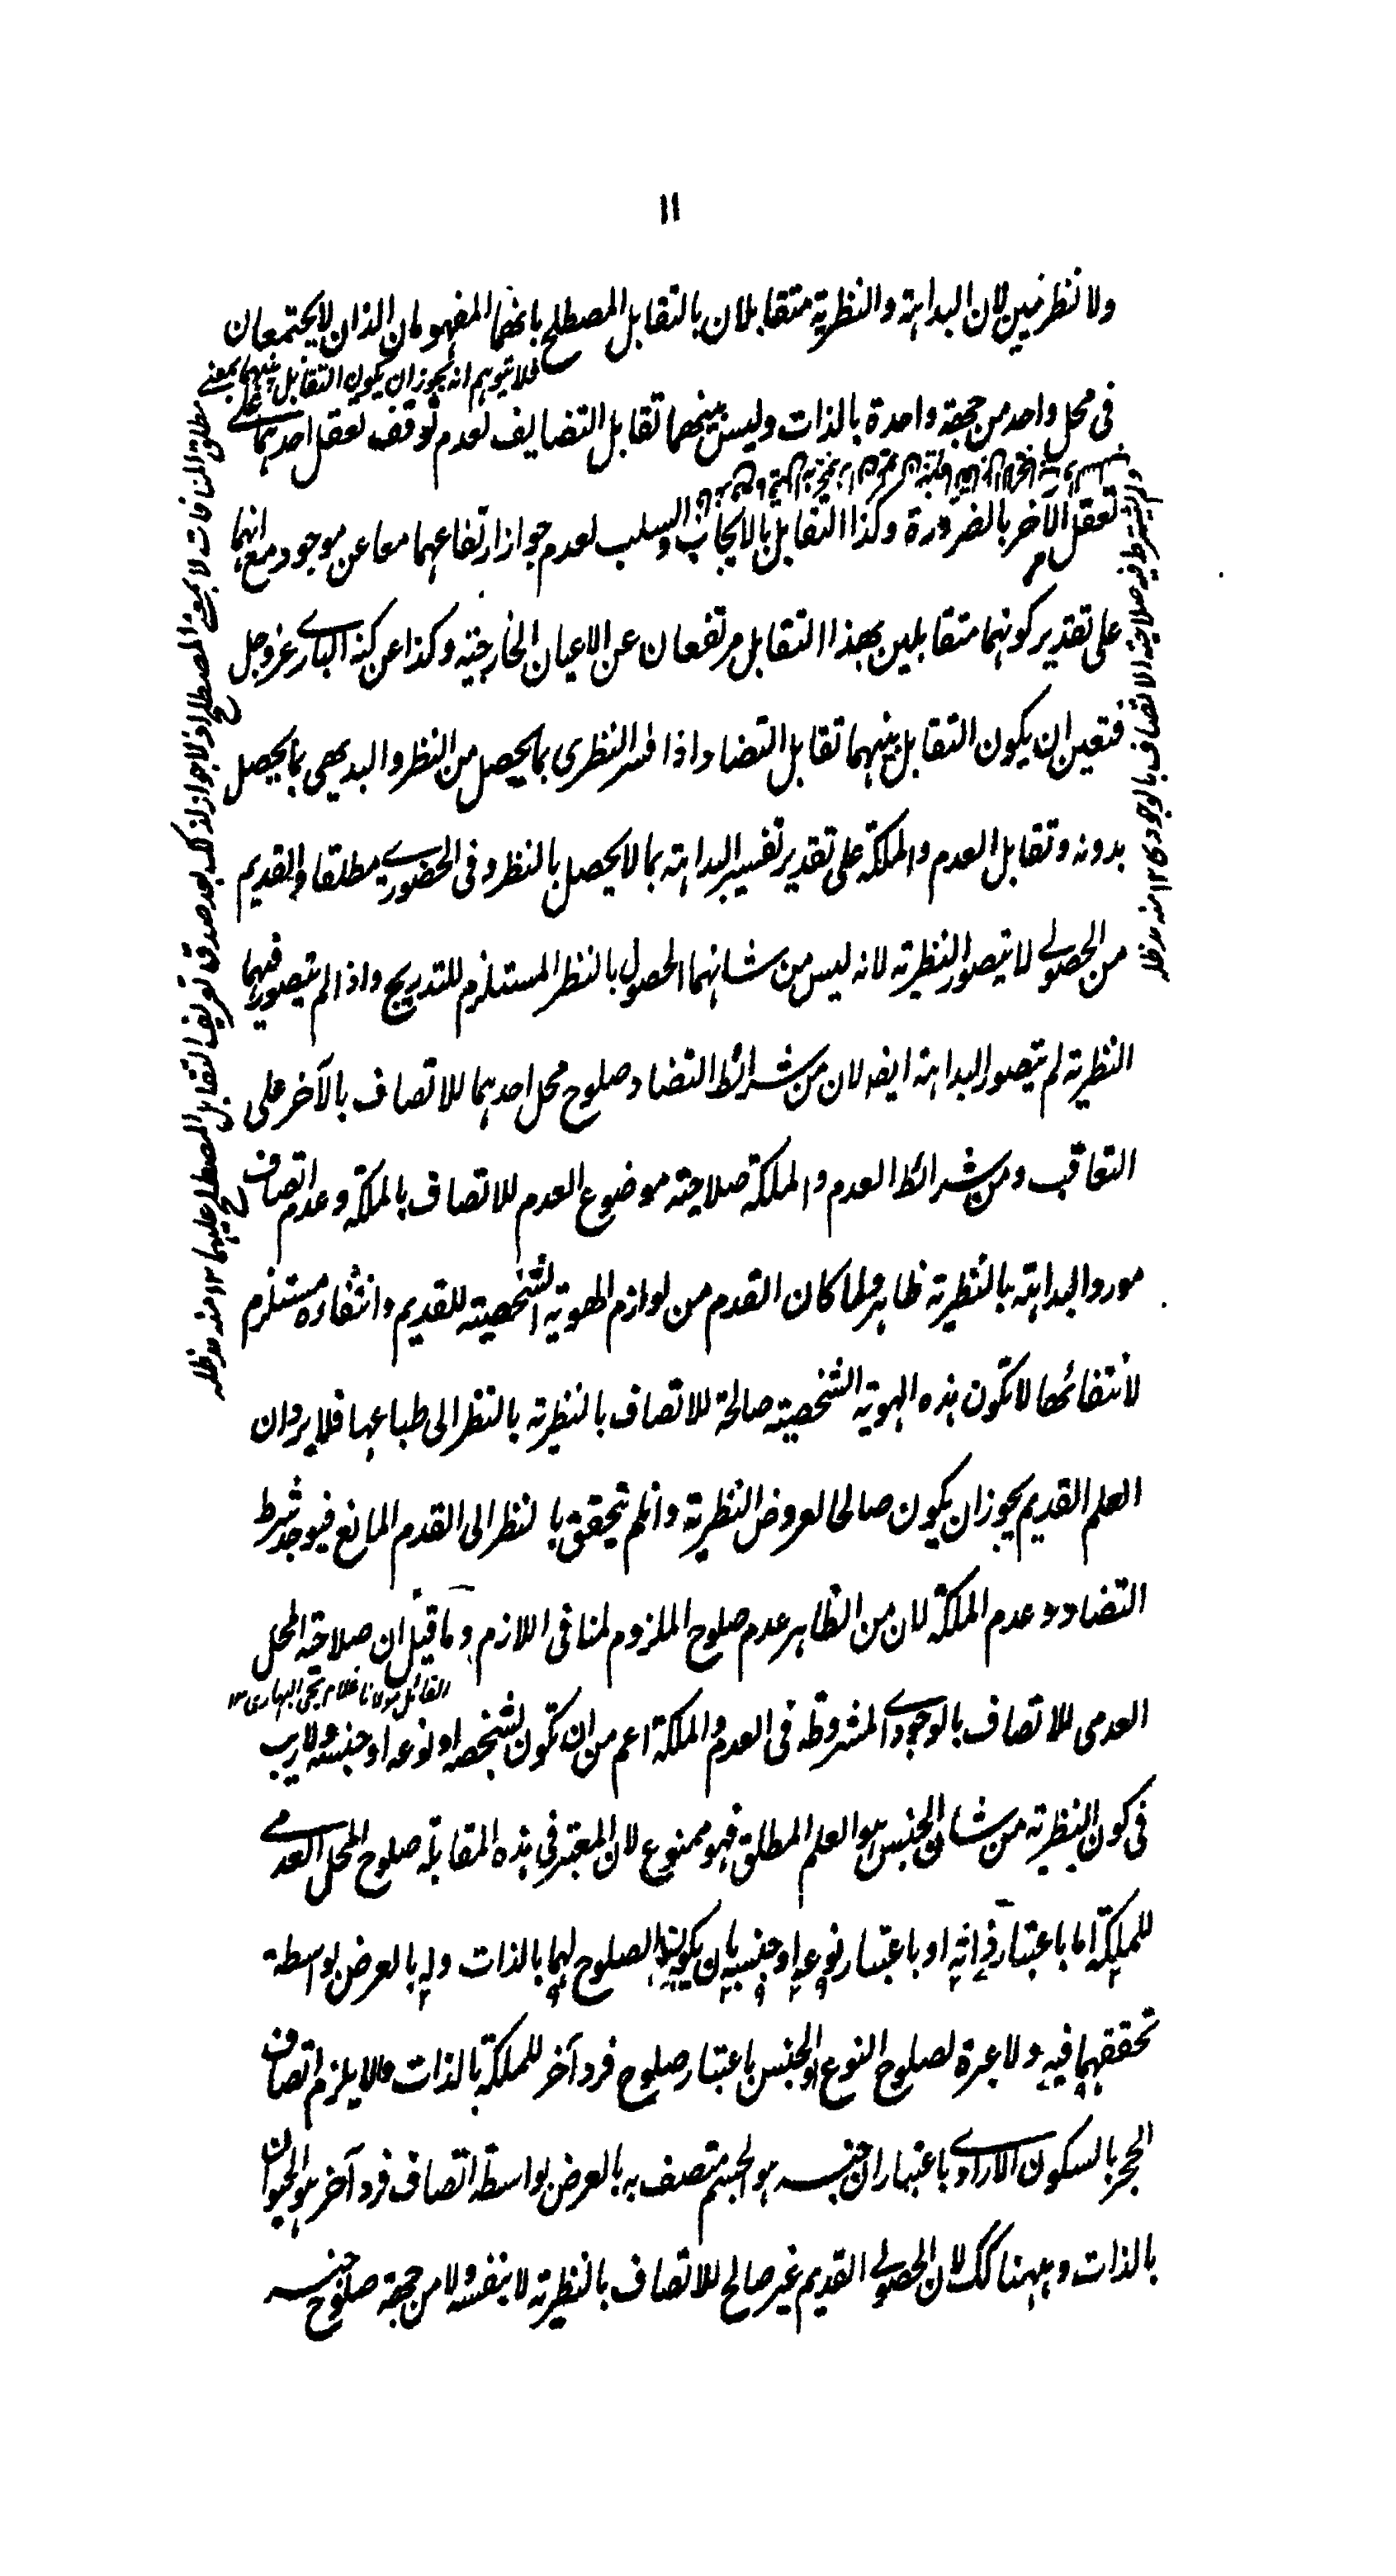 ١١
ولا نظريين لان البداهة والنظرية متقابلان بالتقابل المصطلح بانهما المفهومان الذان لا يجتمعان
فلا يتوهم انه يجوز ان يكون التقابل بينهما بمعنے
فى محل واحد من جهة واحدة بالذات وليس بينهما تقابل التضايف لعدم توقف تعقل احدهما علے
تعقل الآخر بالضرورة وكذا التقابل بالايجاب والسلب لعدم جواز ارتفاعهما معا عن موجود مع انهما
على تقدير كونهما متقابلين بهذا التقابل مرتفعان عن الاعيان الخارجية وكذا عن كنه البارے عز وجل
فتعين ان يكون التقابل بينهما تقابل التضاد اذا فسر النظرى بما يحصل من النظر والبديهى بما يحصل
بدونه وتقابل العدم والملكة على تقدير تفسير البداهة بما لا يحصل بالنظر وفى الحضورے مطلقا والقديم
من الحصولے لا يتصور النظرية لانه ليس من شانهما الحصول بالنظر المستلزم للتدريج واذا لم يتصور فيهما
النظرية لم يتصور البداهة ايضا لان من شرائط التضاد صلوح محل احدهما للاتصاف بالآخر على
التعاقب ومن شرائط العدم والملكة صلاحية موضوع العدم للاتصاف بالملكة وعدم اتصاف
مورد البداهة بالنظرية ظاهر ولما كان القدم من لوازم الهوية الشخصية للقديم وانتفاءه مستلزم
لانتفائها لا تكون هذه الهوية الشخصية صالحة للاتصاف بالنظرية بالنظر الى طباعها فلا يرد ان
العلم القديم يجوز ان يكون صالحا لعروض النظرية وان لم يتحقق بالنظر الى القدم المانع فيوجد شرط
التضاد وعدم الملكة لان من الظاهر عدم صلوح الملزوم لمنافى اللازم وما قيل ان صلاحية المحل
القائل مولانا غلام يحيى البهارى ١٢
العدمى للاتصاف بالوجودے المشروطة فى العدم والملكة اعم من ان تكون لشخصه او نوعه او جنسه ولا ريب
فى كون النظرية من شان الجنس هو العلم المطلق فهو ممنوع لان المعتبر فى هذه المقابلة صلوح المحل العدمے
للملكة اما باعتبار ذاته او باعتبار نوعه او جنسه بان يكون هذا الصلوح لهما بالذات وله بالعرض بواسطة
تحققهما فيه ولا عبرة لصلوح النوع او الجنس باعتبار صلوح فرد آخر للملكة بالذات والا يلزم اتصاف
الحجر بالسكون الارادے باعتبار ان جنسه هو الجسم متصف به بالعرض بواسطة اتصاف فرد آخر هو الحيوان
بالذات وههنا كك لان الحصولے القديم غير صالح للاتصاف بالنظرية لا بنفسه ولا من جهة صلوح جنسه
مطلق المنافات لا بمعنے المصطلح اذ لا جواز لذلك بعد صدق تعريف التقابل المصطلح عليهما ١٢ منه مد ظله
صلاحية الاتصاف بالوجودى ١٢ منه مد ظله